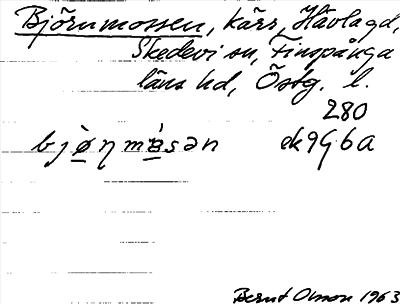 Björnmossen, kärr, Hävlagd,
Skedevi sn, Finspånga
läns hd, Östg. l.
280
bjø̀ꞃmɞ̀sən ek 9G6a
Bernt Olsson 1963